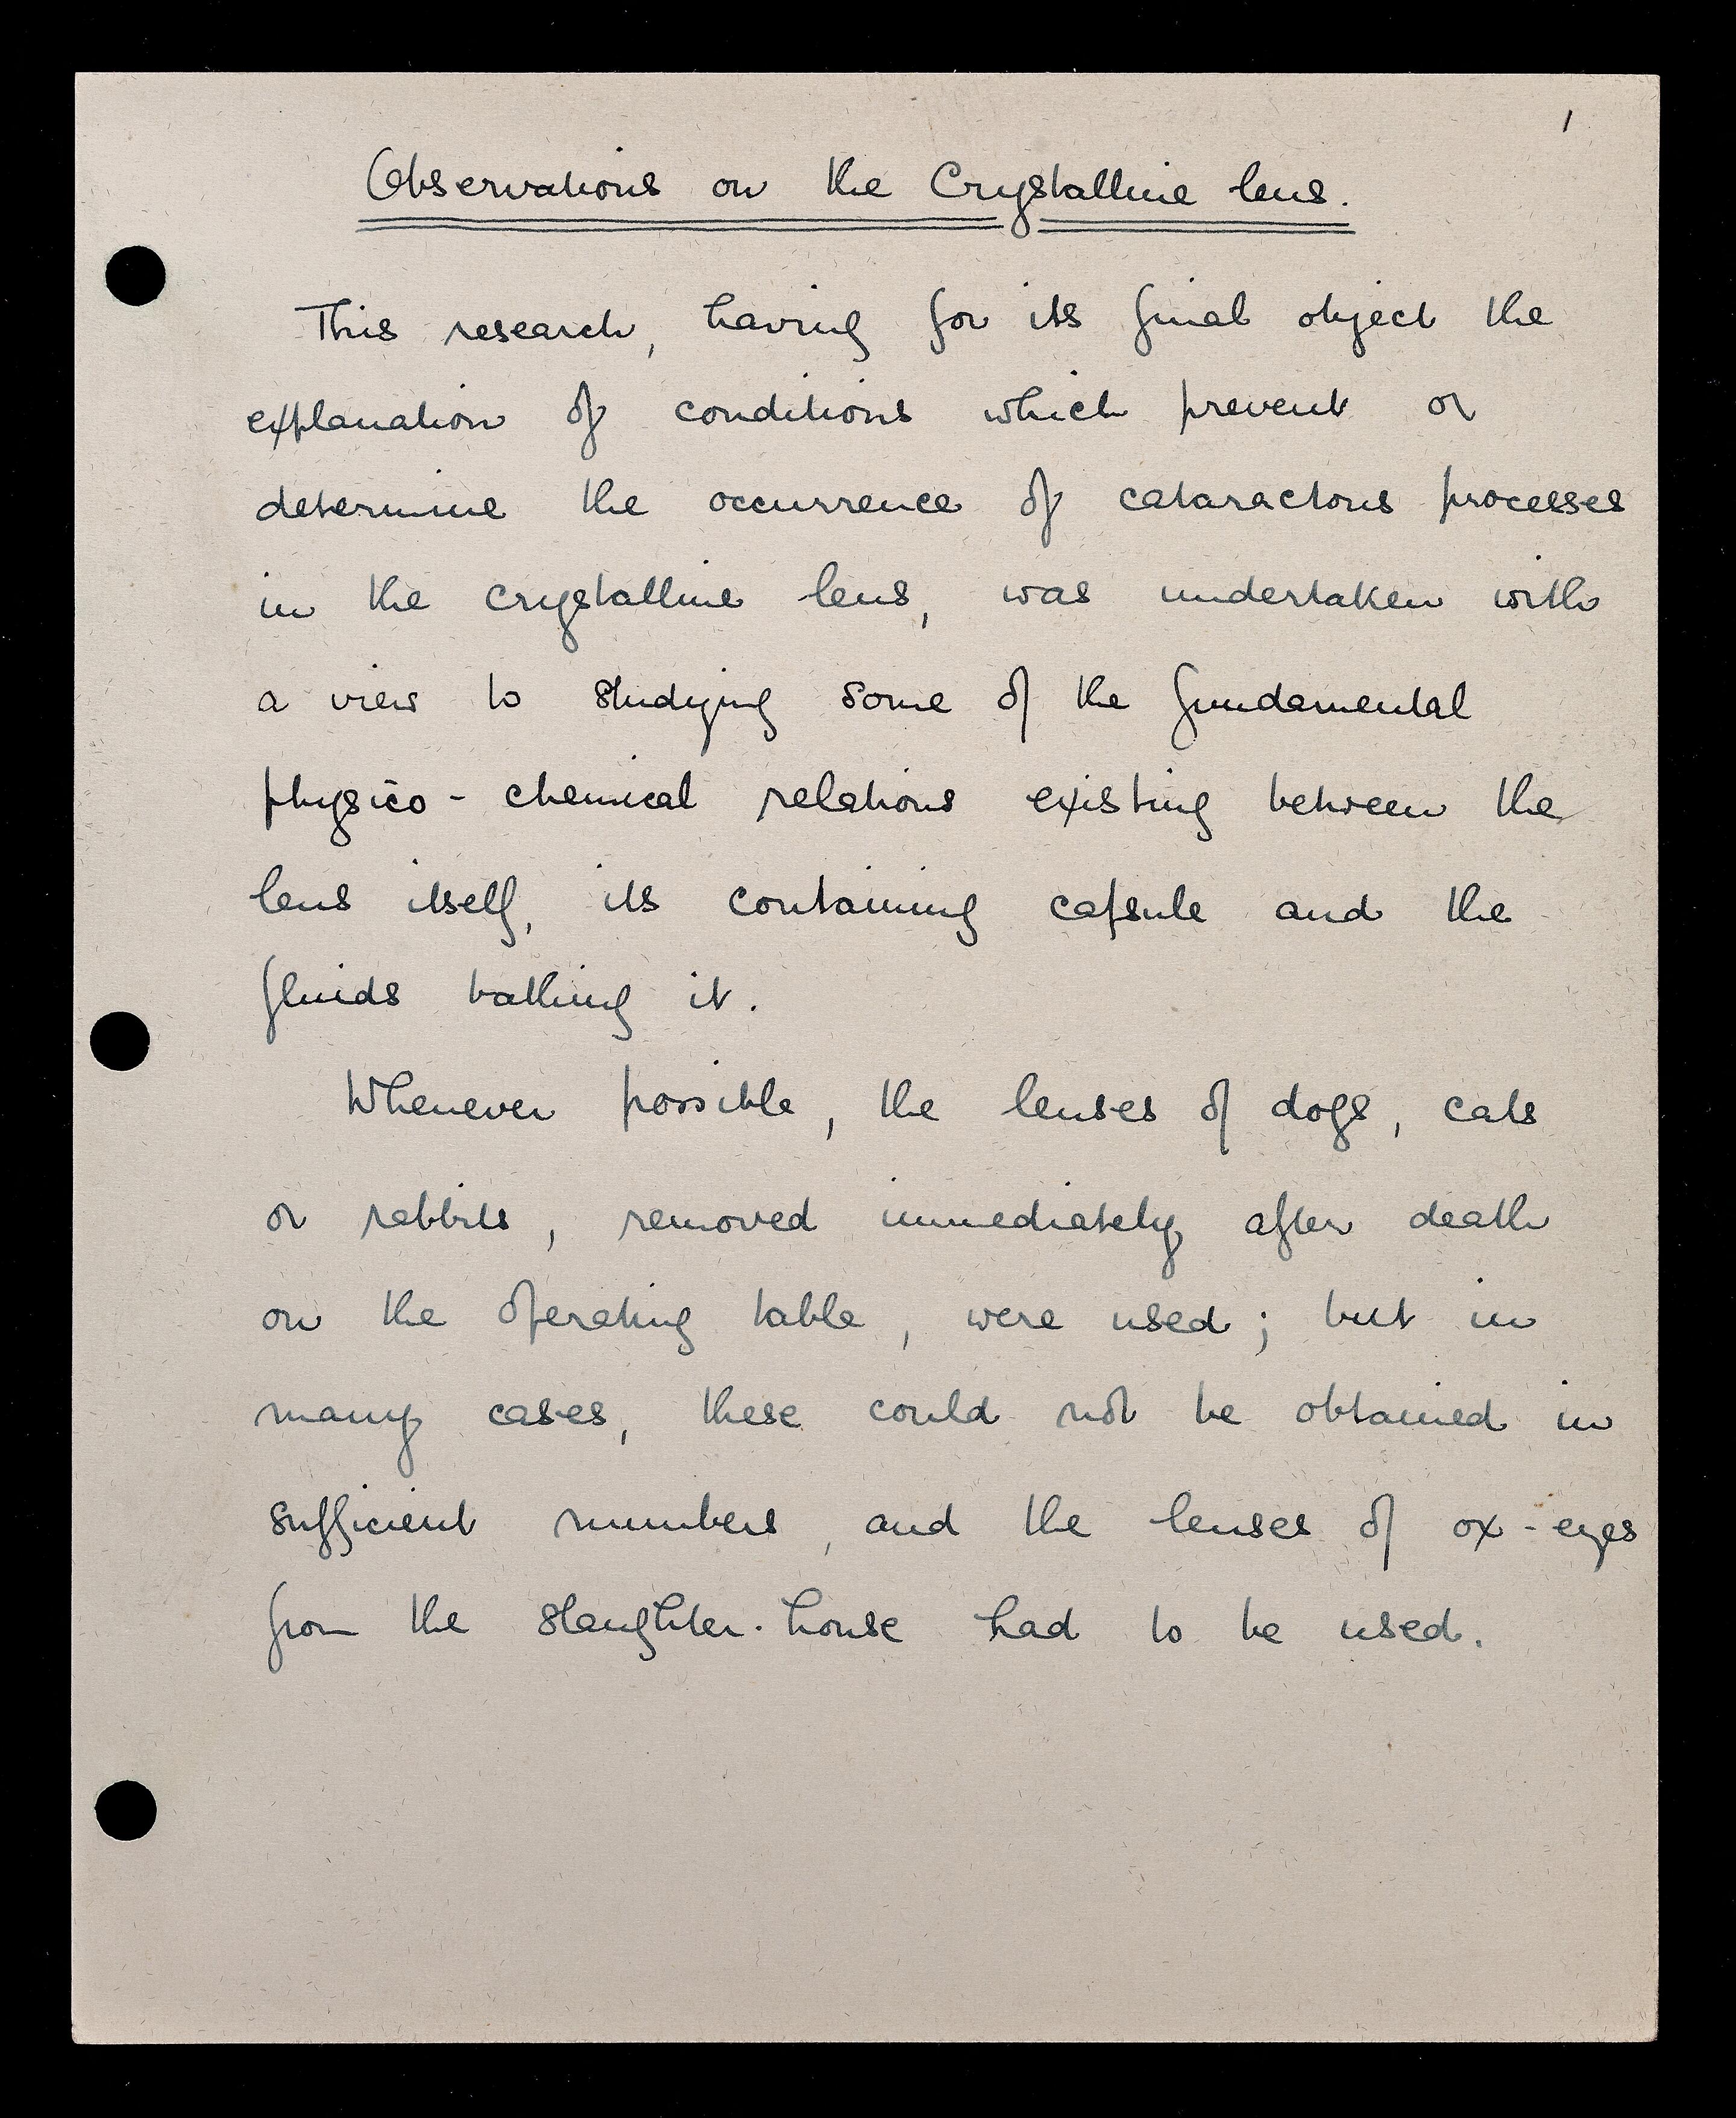 1
Observations on the Crystalline lens.
This research, having for its final object the
explanation of conditions which prevent or
determine the occurrence of cataractous processes
in the crystalline lens, was undertaken with
a view to studying some of the fundamental
physico-chemical relations existing between the
lens itself, its containing capsule and the
fluids bathing it.
Whenever possible, the lenses of dogs, cats
or rabbits, removed immediately after death
on the operating table, were used; but in
many cases, these could not be obtained in
sufficient numbers, and the lenses of ox-eyes
from the slaughter-house had to be used.